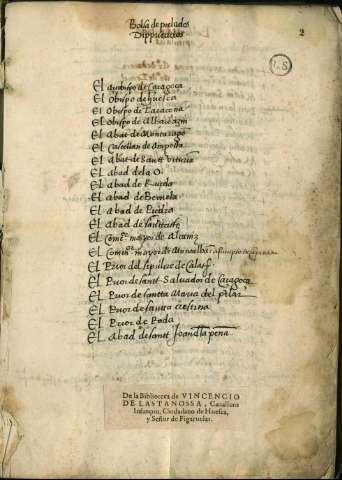 Bolsa de prelados
Dipputados
2
L S
El arçobispo de Caragoça
El Obispo de huesca
El Obispo de Taraçona
El obispo de Albarazin
El Abat de Montaragõ
El Castellan de Amposta
El abat de Sanct Victoriã
El abad de la O
El abad de Rueda
El abad de Beruela
El Abad de Piedra
El Abad de
El Come.or mayor de Alcaniz
El Come.or mayor de Montalbã
El Prior del sepulcro de Calat.d
El Prior de sanct Saluador de Caragoça
El Prior de sancta Maria del pilar
El Prior de sancta cristina
El Prior de Roda
El Abad de sanct Joan de la peña
De la Biblioteca de VINCENCIO
DE LASTANOSSA, Cauallero
Infançon, Ciudadano de Huesca,
y Señor de Figaruelas.